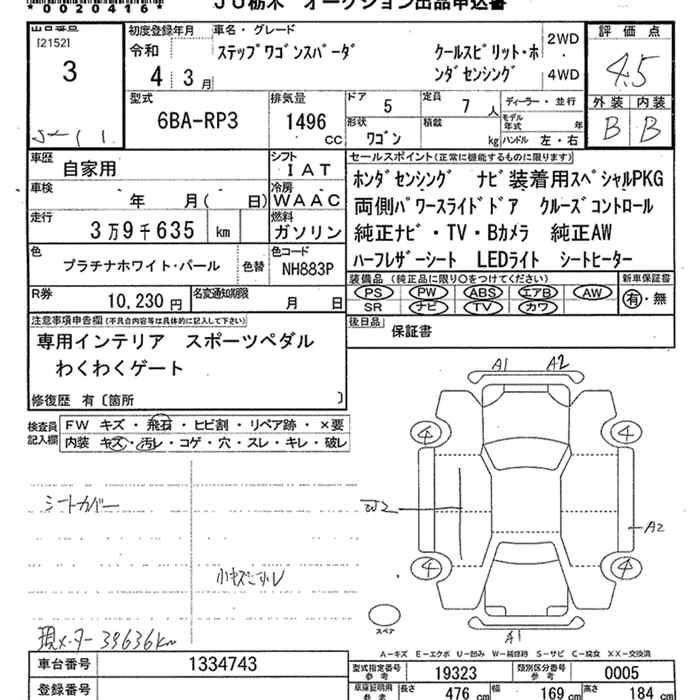 *0020416*
JU栃木 オークション出品申込書
[2152]
3
初度登録年月
令和
4年 3月
車名・グレード
ステップワゴンスパーダ
クールスピリット・ホンダセンシング
2WD
4WD
評価点
4.5
外装 内装
B B
型式
6BA-RP3
排気量
1496 cc
ドア 5
定員 7人
形状 ワゴン
積載 kg
ディーラー・並行
モデル年式 年
ハンドル 左・右
車歴 自家用
シフト IAT
車検 年 月( 日)
冷房 WAAC
走行 3万9千635 km
燃料 ガソリン
色 プラチナホワイト・パール
色替
色コード NH883P
R券 10,230円
名変通知期限 月 日
セールスポイント(正常に機能するものに限ります)
ホンダセンシング ナビ装着用スペシャルPKG
両側パワースライドドア クルーズコントロール
純正ナビ・TV・Bカメラ 純正AW
ハーフレザーシート LEDライト シートヒーター
装備品(純正品に限り○をつけてください)
PS PW ABS エアB AW
SR ナビ TV カワ
新車保証書
有・無
後日品 保証書
注意事項申告欄(不具合内容等は具体的に記入して下さい)
専用インテリア スポーツペダル
わくわくゲート
修復歴 有〔箇所 〕
検査員記入欄
FW キズ・飛石・ヒビ割・リペア跡・×要
内装 キズ・汚レ・コゲ・穴・スレ・キレ・破レ
シートカバー
小キズ
現メーター 39636km
A1 A2
4 4
W2
A2
4 4
A1
スペア
A-キズ E-エクボ U-凹み W-補修跡 S-サビ C-腐食 XX-交換済
車台番号 1334743
登録番号
型式指定番号 参考 19323
類別区分番号 参考 0005
車庫証明用 参考
長さ 476 cm
幅 169 cm
高さ 184 cm